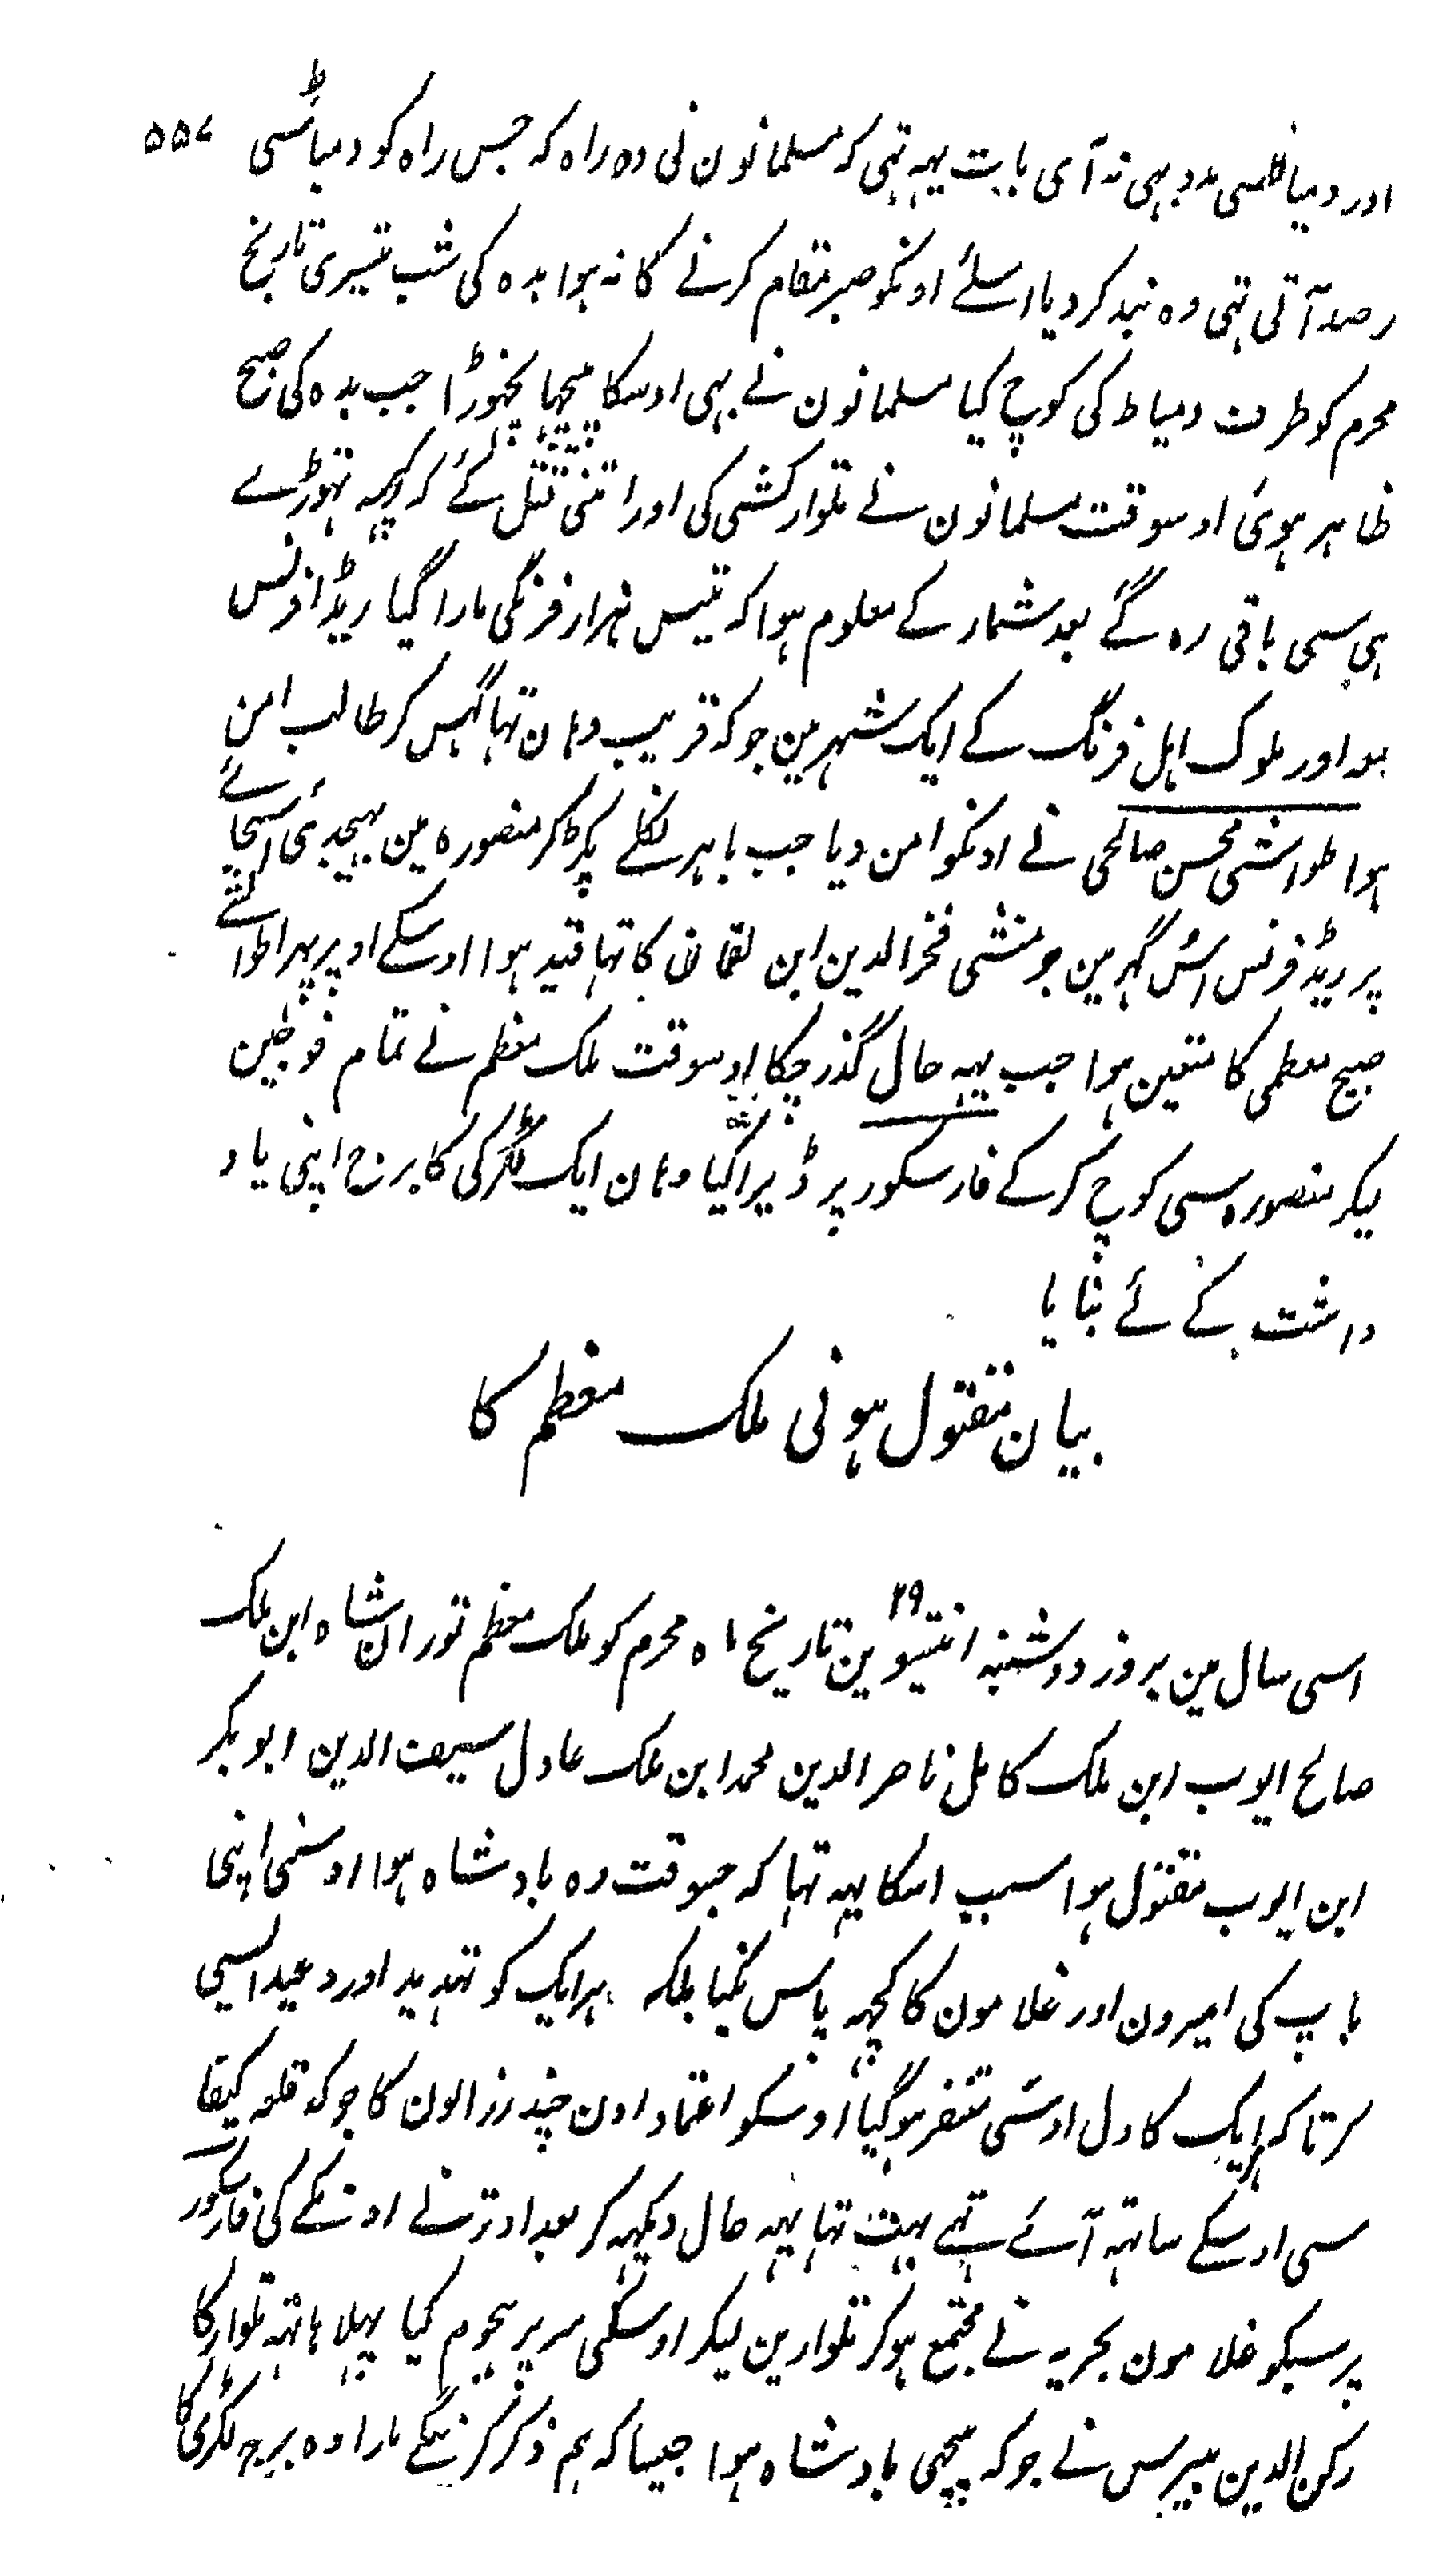 ۵۵۷
اور دمیاطسی مدد بہی نہ آی بابت یہہ تہی کہ مسلمانون نی وہ راہ کہ جس راہ کو دمیاطسی
رصد آتی تہی وہ بند کر دیا اسلئے اونکو صبر مقام کرنے کا نہ ہوا بدہ کی شب تیسری تاریخ
محرم کو طرف دمیاط کی کوچ کیا مسلمانون نے بہی اوسکا پیچہا نچہوڑا جب بدہ کی صبح
ظاہر ہوئ اوسوقت مسلمانون نے تلوار کشی کی اور اتنی قتل کئے کہ کچہہ تہوڑے
ہی سی باقی رہ گے بعد شمار کے معلوم ہوا کہ تیس ہزار فرنگی مارا گیا ریڈ افرنس
بعد اور ملوک اہل فرنگ کے ایک شہر مین جو کہ قریب وہان تہا گہس کر طالب امن
ہوا طواشی محسن صالحی نے اونکو امن دیا جب باہر نکلے پکڑ کر منصورہ مین بہیجدیٔ اسجائے
پر ریڈ فرنس اس گہر مین جو منشی فخر الدین ابن لقمان کا تہا قید ہوا اوسکے اوپر پہرا طواشے
صبیح معظمی کا متعین ہوا جب یہہ حال گذر چکا اوسوقت ملک معظم نے تمام فوجین
لیکر منصورہ سی کوچ کر کے فارسکور پر ڈیرا کیا وہان ایک لکڑ کی کا برج اپنی یاد
داشت کے لئے بنایا
بیان مقتول ہونی ملک معظم کا
اسی سال مین بروز دوشنبہ انتیسوین ۲۹ تاریخ ماہ محرم کو ملک معظم توران شاہ ابن ملک
صالح ایوب ابن ملک کامل ناصر الدین محمد ابن ملک عادل سیف الدین ابو بکر
ابن ایوب مقتول ہوا سبب اسکا یہہ تہا کہ جبوقت وہ بادشاہ ہوا اوسنی اپنی
باپ کی امیرون اور غلامون کا کچہہ پاس نکیا بلکہ ہر ایک کو تہدید اور وعید ایسی
کرتا کہ ہر ایک کا دل اوسی متنفر ہو گیا اوسکو اعتماد اون چند رزالون کا جو کہ قلعہ کیفا
سی اوسکے ساتہہ آئے تہے بہت تہا یہہ حال دیکہہ کر بعد اوترنے اونکے کی فارسکور
پر سبکو غلامون بحریہ نے مجتمع ہو کر تلوارین لیکر اوسکی سر پر ہجوم کیا پہلا ہاتہہ تلوار کا
رکن الدین بیبرس نے جو کہ پیچہی بادشاہ ہوا جیسا کہ ہم ذکر کرینگے مارا وہ برج لکڑی کا